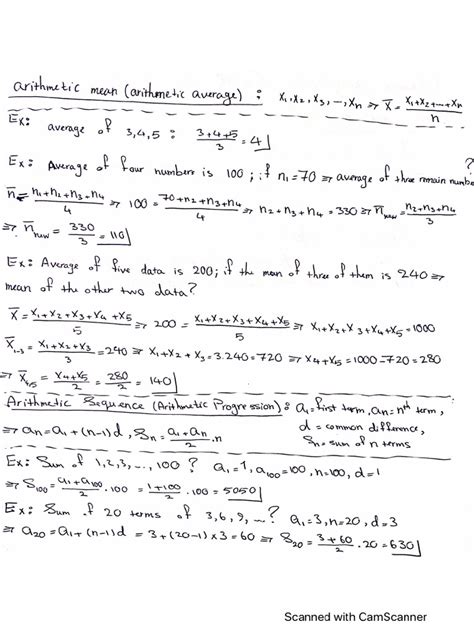 arithmetic mean (arithmetic average) : x₁, x₂, x₃, ..., xₙ ⇒ x̄ = (x₁+x₂+...+xₙ)/n
Ex: average of 3,4,5 : (3+4+5)/3 = 4
Ex: Average of four numbers is 100; if n₁=70 ⇒ average of three remain number?
n̄ = (n₁+n₂+n₃+n₄)/4 ⇒ 100 = (70+n₂+n₃+n₄)/4 ⇒ n₂+n₃+n₄ = 330 ⇒ n̄new = (n₂+n₃+n₄)/3
⇒ n̄new = 330/3 = 110
Ex: Average of five data is 200; if the mean of three of them is 240 ⇒
mean of the other two data?
x̄ = (x₁+x₂+x₃+x₄+x₅)/5 ⇒ 200 = (x₁+x₂+x₃+x₄+x₅)/5 ⇒ x₁+x₂+x₃+x₄+x₅ = 1000
x̄₁₋₃ = (x₁+x₂+x₃)/3 = 240 ⇒ x₁+x₂+x₃ = 3.240 = 720 ⇒ x₄+x₅ = 1000-720 = 280
⇒ x̄₄,₅ = (x₄+x₅)/2 = 280/2 = 140
Arithmetic Sequence (Arithmetic Progression) : a₁ = first term, aₙ = nth term,
⇒ aₙ = a₁ + (n-1)d , Sₙ = (a₁+aₙ)/2 . n
d = common difference,
Sₙ = sum of n terms
Ex: Sum of 1,2,3, ..., 100 ? a₁=1, a₁₀₀=100, n=100, d=1
⇒ S₁₀₀ = (a₁+a₁₀₀)/2 . 100 = (1+100)/2 . 100 = 5050
Ex: Sum of 20 terms of 3,6,9, ...? a₁=3, n=20, d=3
⇒ a₂₀ = a₁+(n-1)d = 3+(20-1)×3 = 60 ⇒ S₂₀ = (3+60)/2 . 20 = 630
Scanned with CamScanner